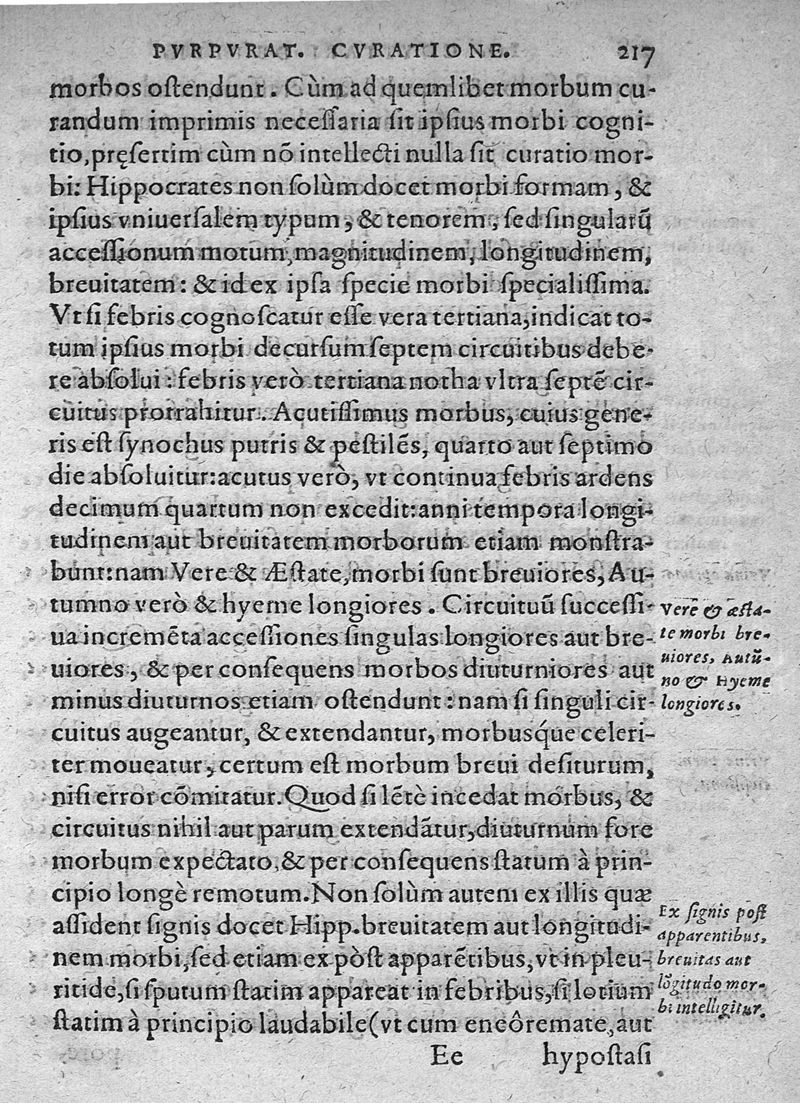 PVRPVRAT. CVRATIONE. 217
morbos oſtendunt. Cùm ad quemlibet morbum cu-
randum imprimis neceſſaria ſit ipſius morbi cogni-
tio, pręſertim cùm nõ intellecti nulla ſit curatio mor-
bi: Hippocrates non ſolùm docet morbi formam, &
ipſius vniuerſalem typum, & tenorem, ſed ſingularũ
acceſſionum motum, magnitudinem, longitudinem,
breuitatem: & id ex ipſa ſpecie morbi ſpecialiſſima.
Vt ſi febris cognoſcatur eſſe vera tertiana, indicat to-
tum ipſius morbi decurſum ſeptem circuitibus debe-
re abſolui: febris verò tertiana notha vltra ſeptẽ cir-
cuitus protrahitur. Acutiſſimus morbus, cuius gene-
ris eſt ſynochus putris & peſtilẽs, quarto aut ſeptimo
die abſoluitur: acutus verò, vt continua febris ardens
decimum quartum non excedit: anni tempora longi-
tudinem aut breuitatem morborum etiam monſtra-
bunt: nam Vere & Æſtate, morbi ſunt breuiores, Au-
tumno verò & hyeme longiores. Circuituũ ſucceſſi-
ua incremẽta acceſſiones ſingulas longiores aut bre-
uiores, & per conſequens morbos diuturniores aut
minus diuturnos etiam oſtendunt: nam ſi ſinguli cir-
cuitus augeantur, & extendantur, morbusq́ue celeri-
ter moueatur, certum eſt morbum breui deſiturum,
niſi error cõmitatur. Quod ſi lẽtè incedat morbus, &
circuitus nihil aut parum extendãtur, diuturnum fore
morbum expectato, & per conſequens ſtatum à prin-
cipio longè remotum. Non ſolùm autem ex illis quæ
aſſident ſignis docet Hipp. breuitatem aut longitudi-
nem morbi, ſed etiam ex pòſt apparẽtibus, vt in pleu-
ritide, ſi ſputum ſtatim appareat in febribus, ſi lotium
ſtatim à principio laudabile (vt cum eneôremate, aut
Ee hypoſtaſi
Vere & æſta-
te morbi bre-
uiores, Autũ-
no & Hyeme
longiores.
Ex ſignis poſt
apparentibus,
breuitas aut
lõgitudo mor-
bi intelligitur.